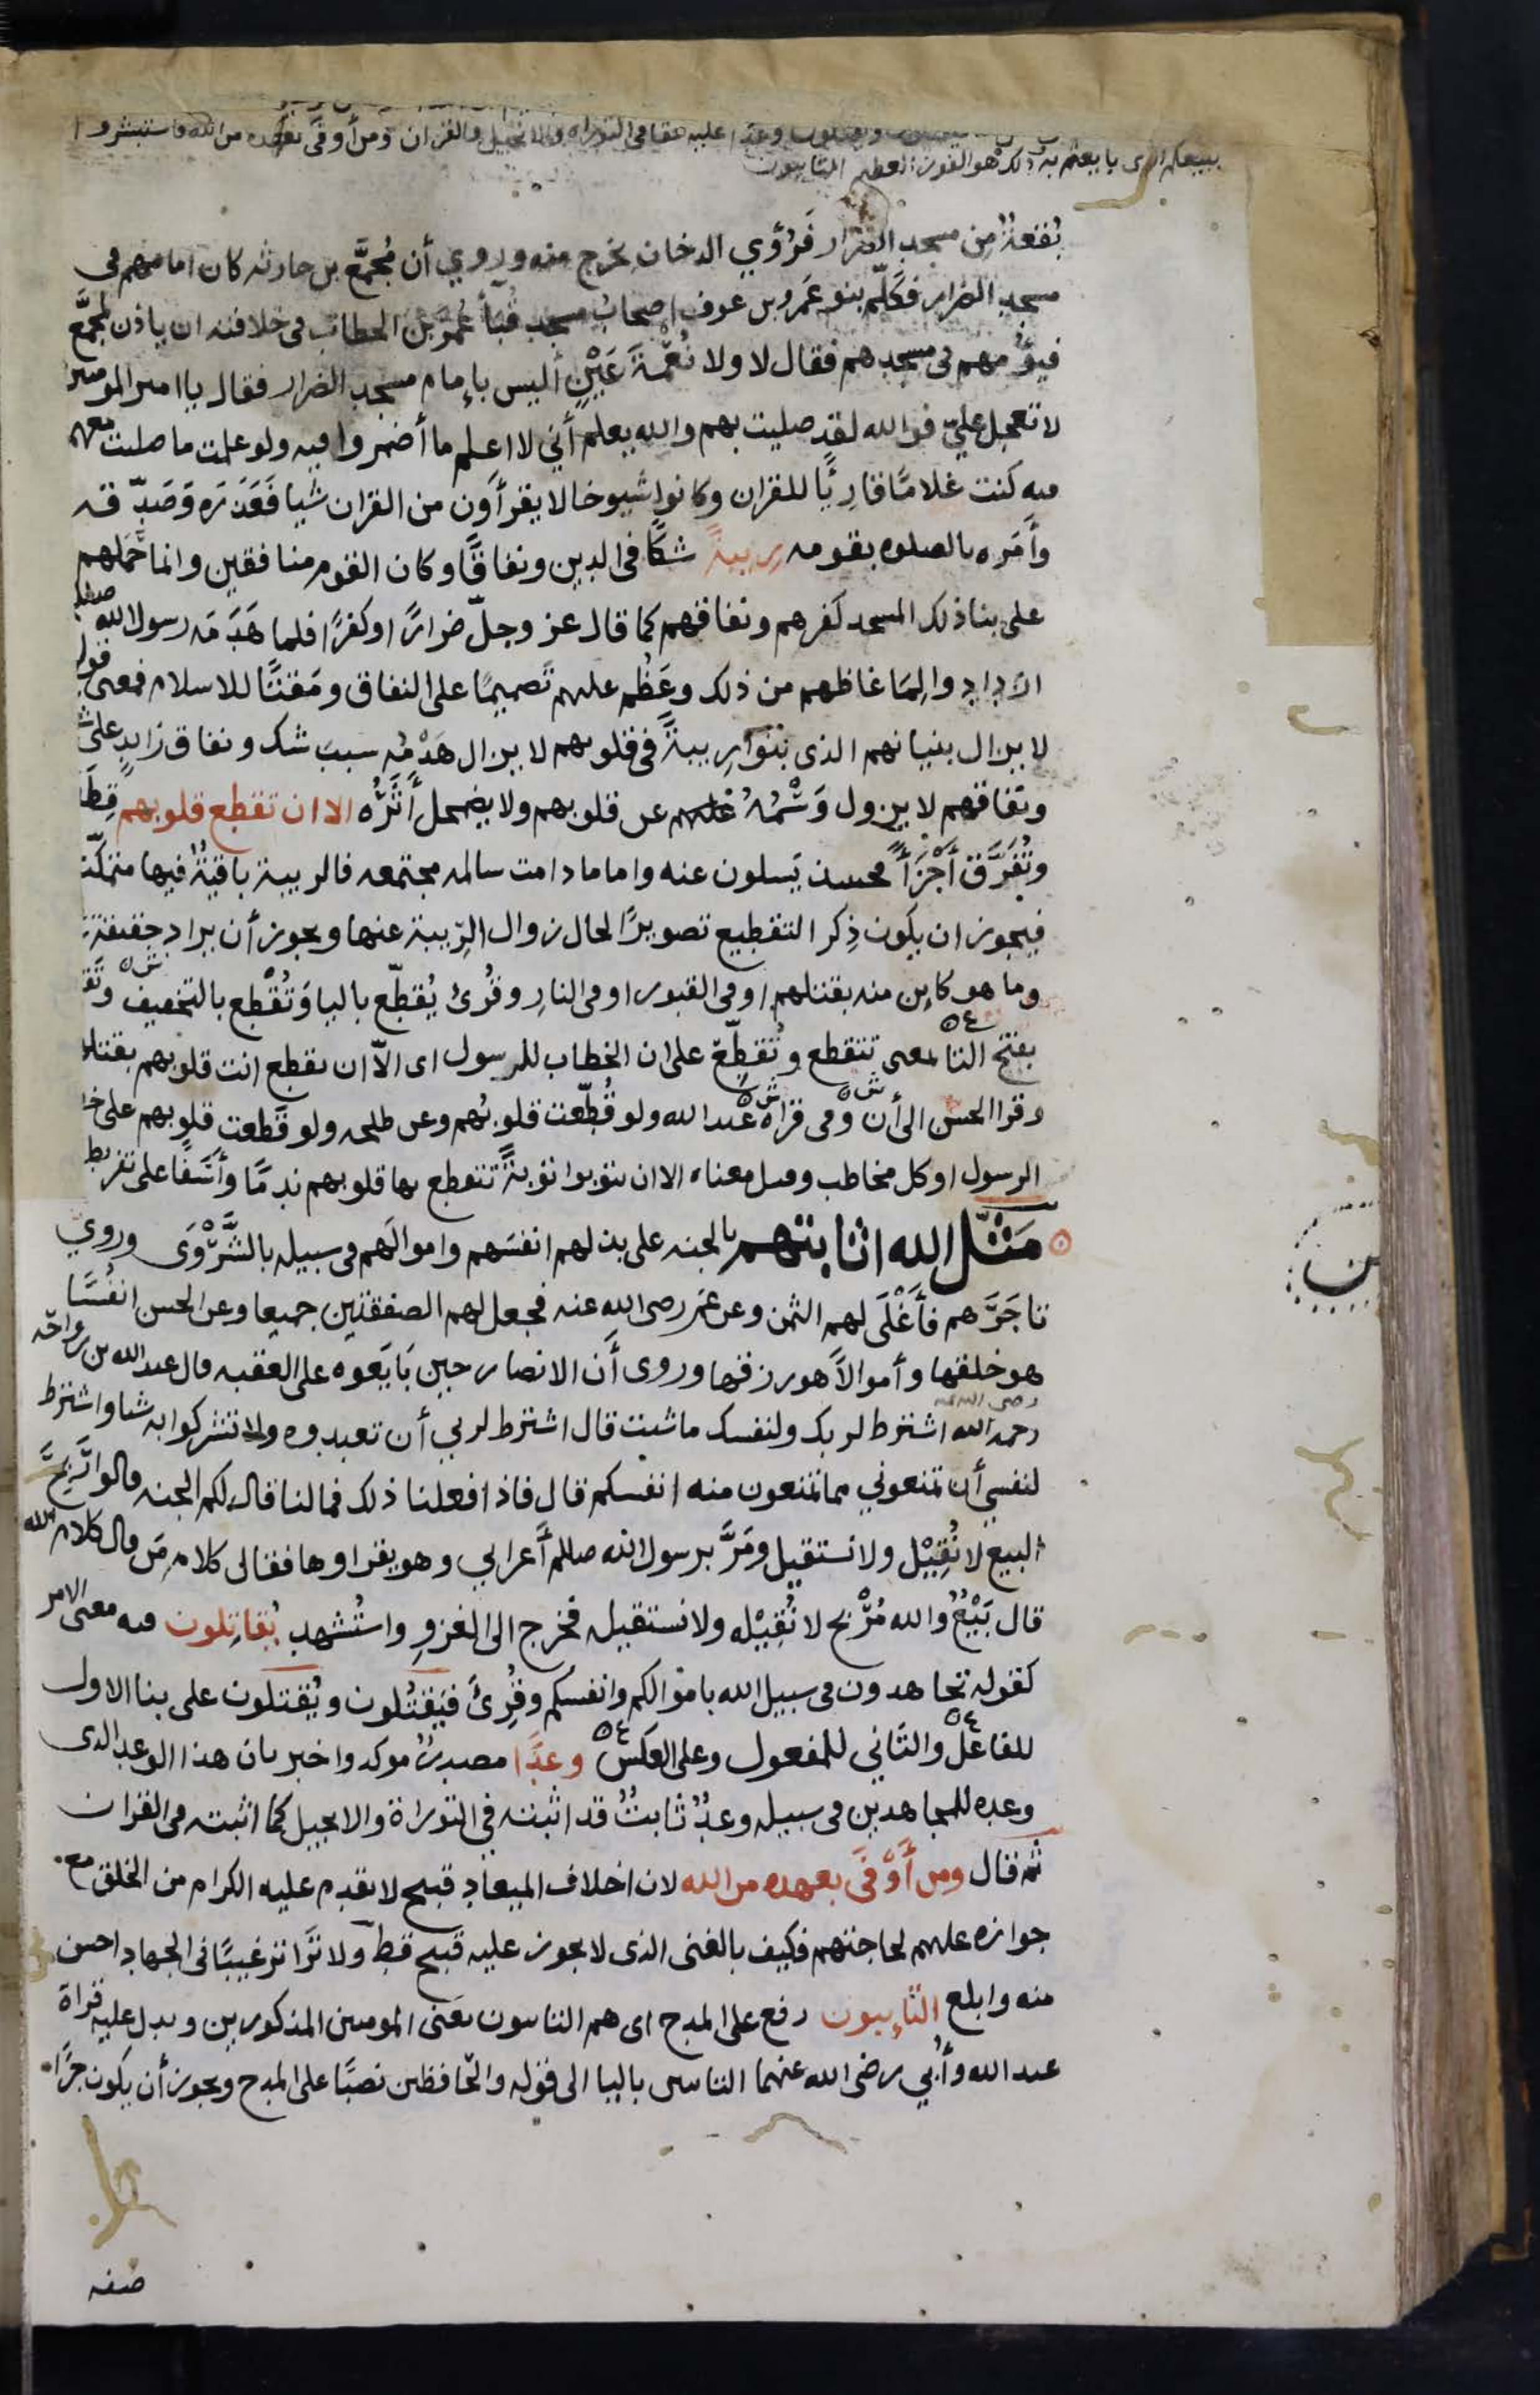 عليه حقا فى التوراه والانجيل والقران ومن أوفى بعهده من الله فاستبشروا
ببيعكم الذى بايعتم به ذلك هو الفوز العظيم التايبون
بُقعةٌ مِن مسجد الضرار فَرُؤي الدخان يخرج منه وروي أن مُجمَّع بن حارثه كان امامهم فى
مسجد الضرار فكَلّم بنو عَمرو بن عوف اصحابُ مسجد قُبأ عُمرَ بن الخطاب فى خلافته ان ياذن لمجمَّع
فيَؤُمهم فى مسجدهم فقال لا ولا نُعْمَةَ عَيْنٍ أليس بإمام مسجد الضرار فقال يا امير المومنين
لا تعجل عليّ فوالله لقد صليت بهم والله يعلم أني لا اعلم ما أضمروا فيه ولو علمت ما صليت معهم
فيه كنت غلامًا قارِيًا للقران وكانوا شيوخا لا يقرأون من القران شيا فَعَذَرَه وَصَدّقه
وأَمَره بالصلوه بقومه ريبةً شكًا فى الدين ونفاقًا وكان القوم منافقين وانما حَمَلهم
على بنا ذلك المسجد كفرهم ونفاقهم كما قال عز وجلّ ضرارًا وكفرًا فلما هَدَمَه رسول الله صلعم
ازدادوا لِمَا غاظهم من ذلك وعَظُم عليهم تصميمًا على النفاق ومَقتًا للاسلام فمعنى قوله
لا يزال بنيانهم الذى بنوا ريبةً فى قلوبهم لا يزال هَدْمُه سببَ شك ونفاق زايدٍ على شكهم
ونفاقهم لا يزول وَسْمُهُ عن قلوبهم ولا يضمحل أَثَرُه الا ان تقطع قلوبهم قِطَعًا
وتُفَرَّق أَجْزَأً فحينئذ يَسلون عنه واما ما دامت سالمه مجتمعه فالريبة باقيةٌ فيها متمكّنة
فيجوز ان يكون ذِكر التقطيع تصويرًا لحال زوال الرِّيبة عنها ويجوز أن يراد حقيقةُ
وما هو كاين منه بقتلهم او فى القبور او فى النارِ وقُرئ يُقطّع باليا وَتُقْطِع بالتخفيف وتَقَ
بفتح التا بمعنى تتقطع وتُقَطِّعَ على ان الخطاب للرسول اى الاّ ان تقطع انت قلوبهم بقتلهم
وقرا الحسن الى أن وفى قراة عبد الله ولو قُطّعت قلوبُهم وعن طلحه ولو قَطّعت قلوبهم على خطاب
الرسول او كل مخاطب وقيل معناه الا ان يتوبوا توبةً تتقطع بها قلوبهم ندمًا وأسَفًا على تفريط
مَثّل الله اثابتهم بالجنه على بذلهم انفسَهم واموالَهم فى سبيله بالشَّرْوَى وروي
تاجَرَهم فأَغْلَى لهم الثمن وعن عمر رضى الله عنه فجعل لهم الصفقتين جميعا وعن الحسن انفُسًا
هو خلقها وأموالاً هو رزقها وروى أن الانصار حين بَايَعوه على العقبه قال عبد الله بن رواحه
رضى الله عنه
رحمه الله اشترط لربك ولنفسك ما شئت قال اشترط لربي أن تعبدوه ولا تشركوا به شيا واشترط
لنفسي أن تمنعوني مما تمنعون منه انفسكم قال فاذا فعلنا ذلك فما لنا قال لكم الجنه قالوا رَبحَ
البيع لا نُقِيْل ولا نستقيل ومَرَّ برسول الله صللم أعرابي وهو يقراوها فقال كلام مَن قال كلام الله
قال بَيْعٌ والله مُرْبح لا نُقِيْله ولا نستقيله فخرج الى الغزوِ واستُشهد يُقاتِلون فيه معنى الامر
كقوله تجاهدون فى سبيل الله باموالكم وانفسكم وقُرِئَ فَيَقْتُلون ويُقتلون على بنا الاول
للفاعل والثاني للمفعول وعلى العكس وعدًا مصدرٌ موكد واخبر بان هذا الوعد الذى
وعده للمجاهدين فى سبيله وعدٌ ثابتٌ قد اثبته في التوراة والانجيل كما اثبته فى القران
ثم قال ومن أَوْفَى بعهده من الله لان اخلاف الميعاد قبيح لا يقدم عليه الكرام من الخلق مع
جوازه عليهم لحاجتهم فكيف بالغنى الذى لا يجوز عليه قبيح قط ولا تَرَا ترغيبًا فى الجهاد احسن
منه وابلغ التايبون رفع على المدح اى هم التايبون يعنى المومنين المذكورين ويدل عليه قراة
عبد الله وأُبي رضى الله عنهما التايبين باليا الى قوله والحافظين نصبًا على المدح ويجوز أن يكون جرًا
صفه